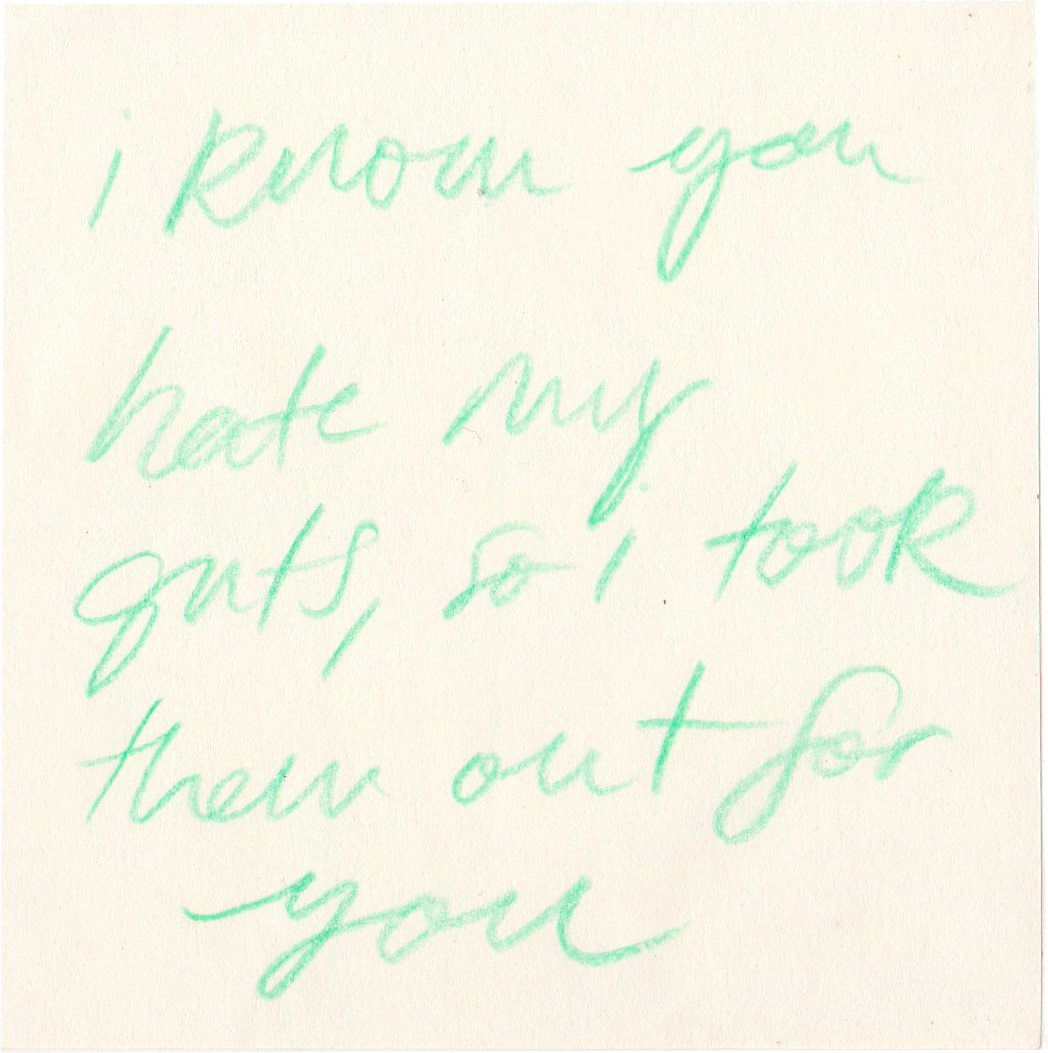 i know you
hate my
guts, so i took
them out for
you